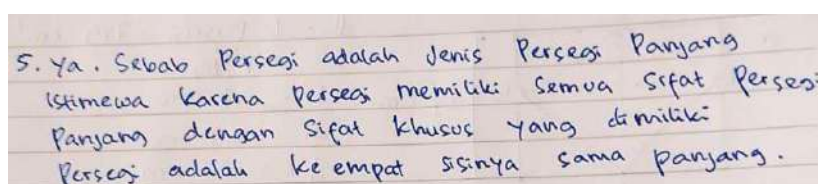 5. Ya. Sebab Persegi adalah Jenis Persegi Panjang
istimewa Karena Persegi memiliki Semua Sifat Persegi
Panjang dengan Sifat Khusus yang dimiliki
Persegi adalah Ke empat sisinya sama panjang.